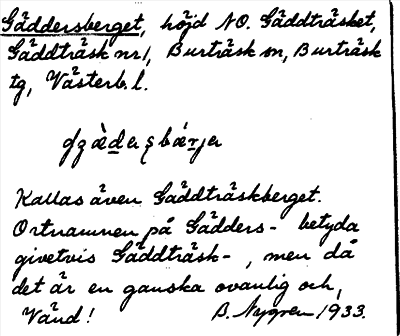 Gäddersberget, höjd NO. Gäddträsket,
Gäddträsk nr 1, Burträsk sn, Burträsk
tg, Västerb. l.
Kallas även Gäddträskberget.
Ortnamnen på Gädders- betyda
givetvis Gäddträsk-, men då
det är en ganska ovanlig och,
Vänd! B. Nygren 1933.